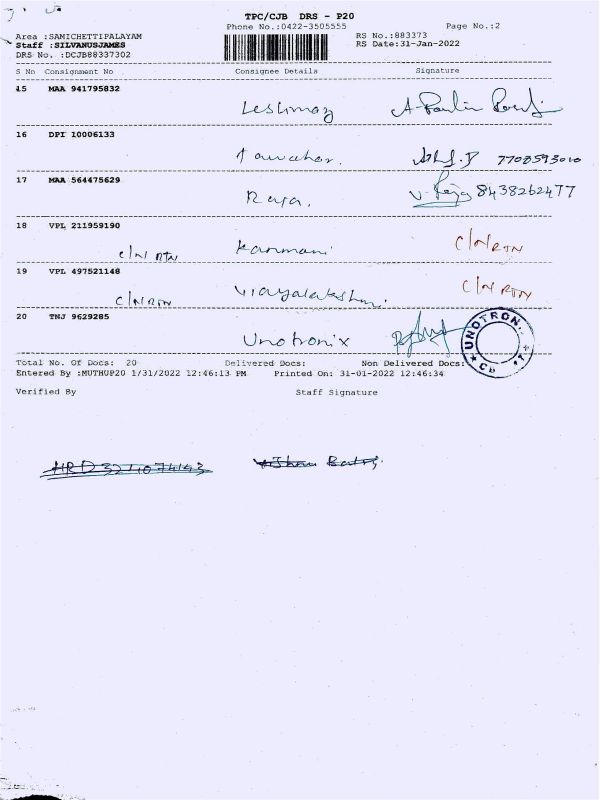 TPC/CJB DRS - P20
Phone No.:0422-3505555 Page No.:2
Area :SAMICHETTIPALAYAM RS No.:883373
Staff :SILVANUSJAMES RS Date:31-Jan-2022
DRS No. :DCJB88337302
S No Consignment No Consignee Details Signature
15 MAA 941795832
Leslimay
16 DPI 10006133
Tawahar. 7708593010
17 MAA 564475629
Raja. V. Raja 8438262477
18 VPL 211959190
C/N RTN Kanmani C/N RTN
19 VPL 497521148
C/N RTN Viayalakshmi. C/N RTN
20 TNJ 9629285
Unotronix
UNOTRON
CB
Total No. Of Docs: 20 Delivered Docs: Non Delivered Docs:
Entered By :MUTHUP20 1/31/2022 12:46:13 PM Printed On: 31-01-2022 12:46:34
Verified By Staff Signature